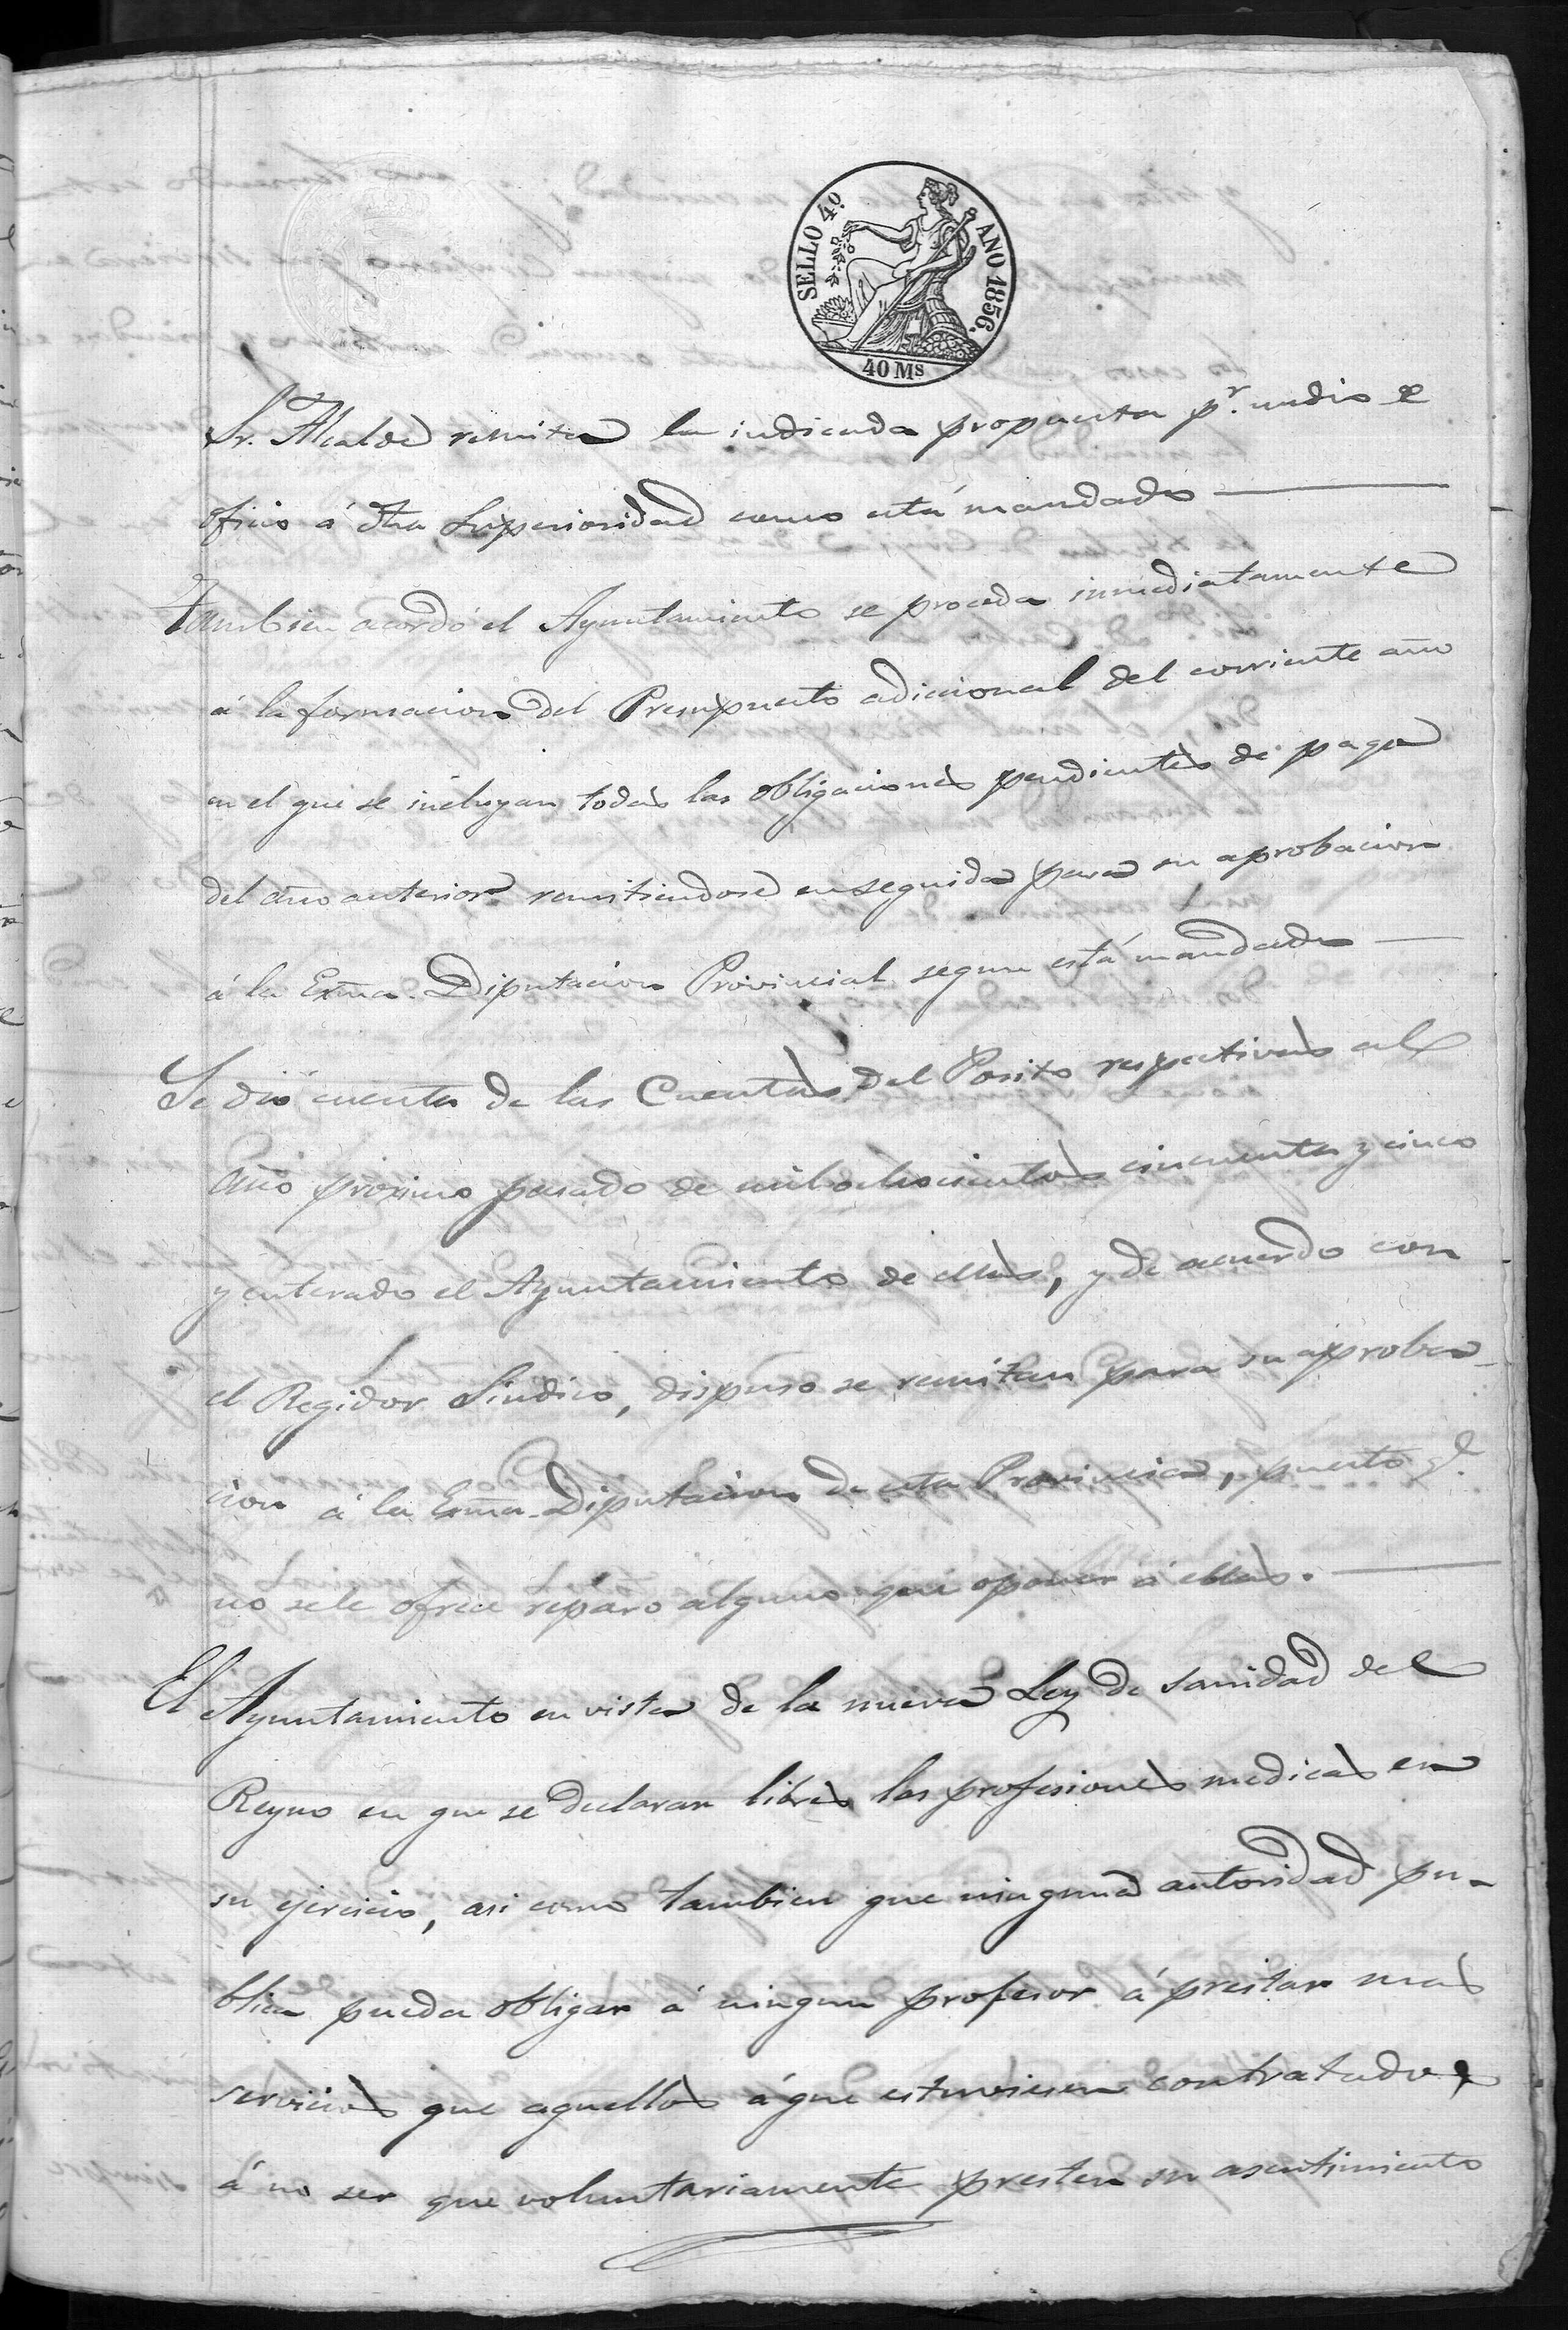 SELLO 4º AÑO 1856.
40 Ms
Sr. Alcalde remita la indicada propuesta pr. medio de
oficio á dha Superioridad como está mandado
Tambien acordó el Ayuntamiento se proceda inmediatamente
á la formacion del Presupuesto adicional del corriente año
en el que se incluyan todas las obligaciones pendientes de pago
del año anterior remitiendose enseguida para su aprobacion
á la Exma. Diputacion Provincial segun está mandado
Se dió cuenta de las Cuentas del Posito respectivas al
Año proximo pasado de mil ochocientos cincuenta y cinco
y enterado el Ayuntamiento de ellas, y de acuerdo con
el Regidor Sindico, dispuso se remitan para su aproba-
cion á la Exma. Diputacion de esta Provincia, puesto q.
no se le ofrece reparo alguno que oponer á ellas.
El Ayuntamiento en vista de la nueva Ley de Sanidad del
Reyno en que se declaran libres las profesiones medicas en
su ejercicio, asi como tambien que ninguna autoridad pu-
blica pueda obligar á ningun profesor á prestar mas
servicios que aquellos á que estuviesen contratados
á no ser que voluntariamente presten su asentimiento